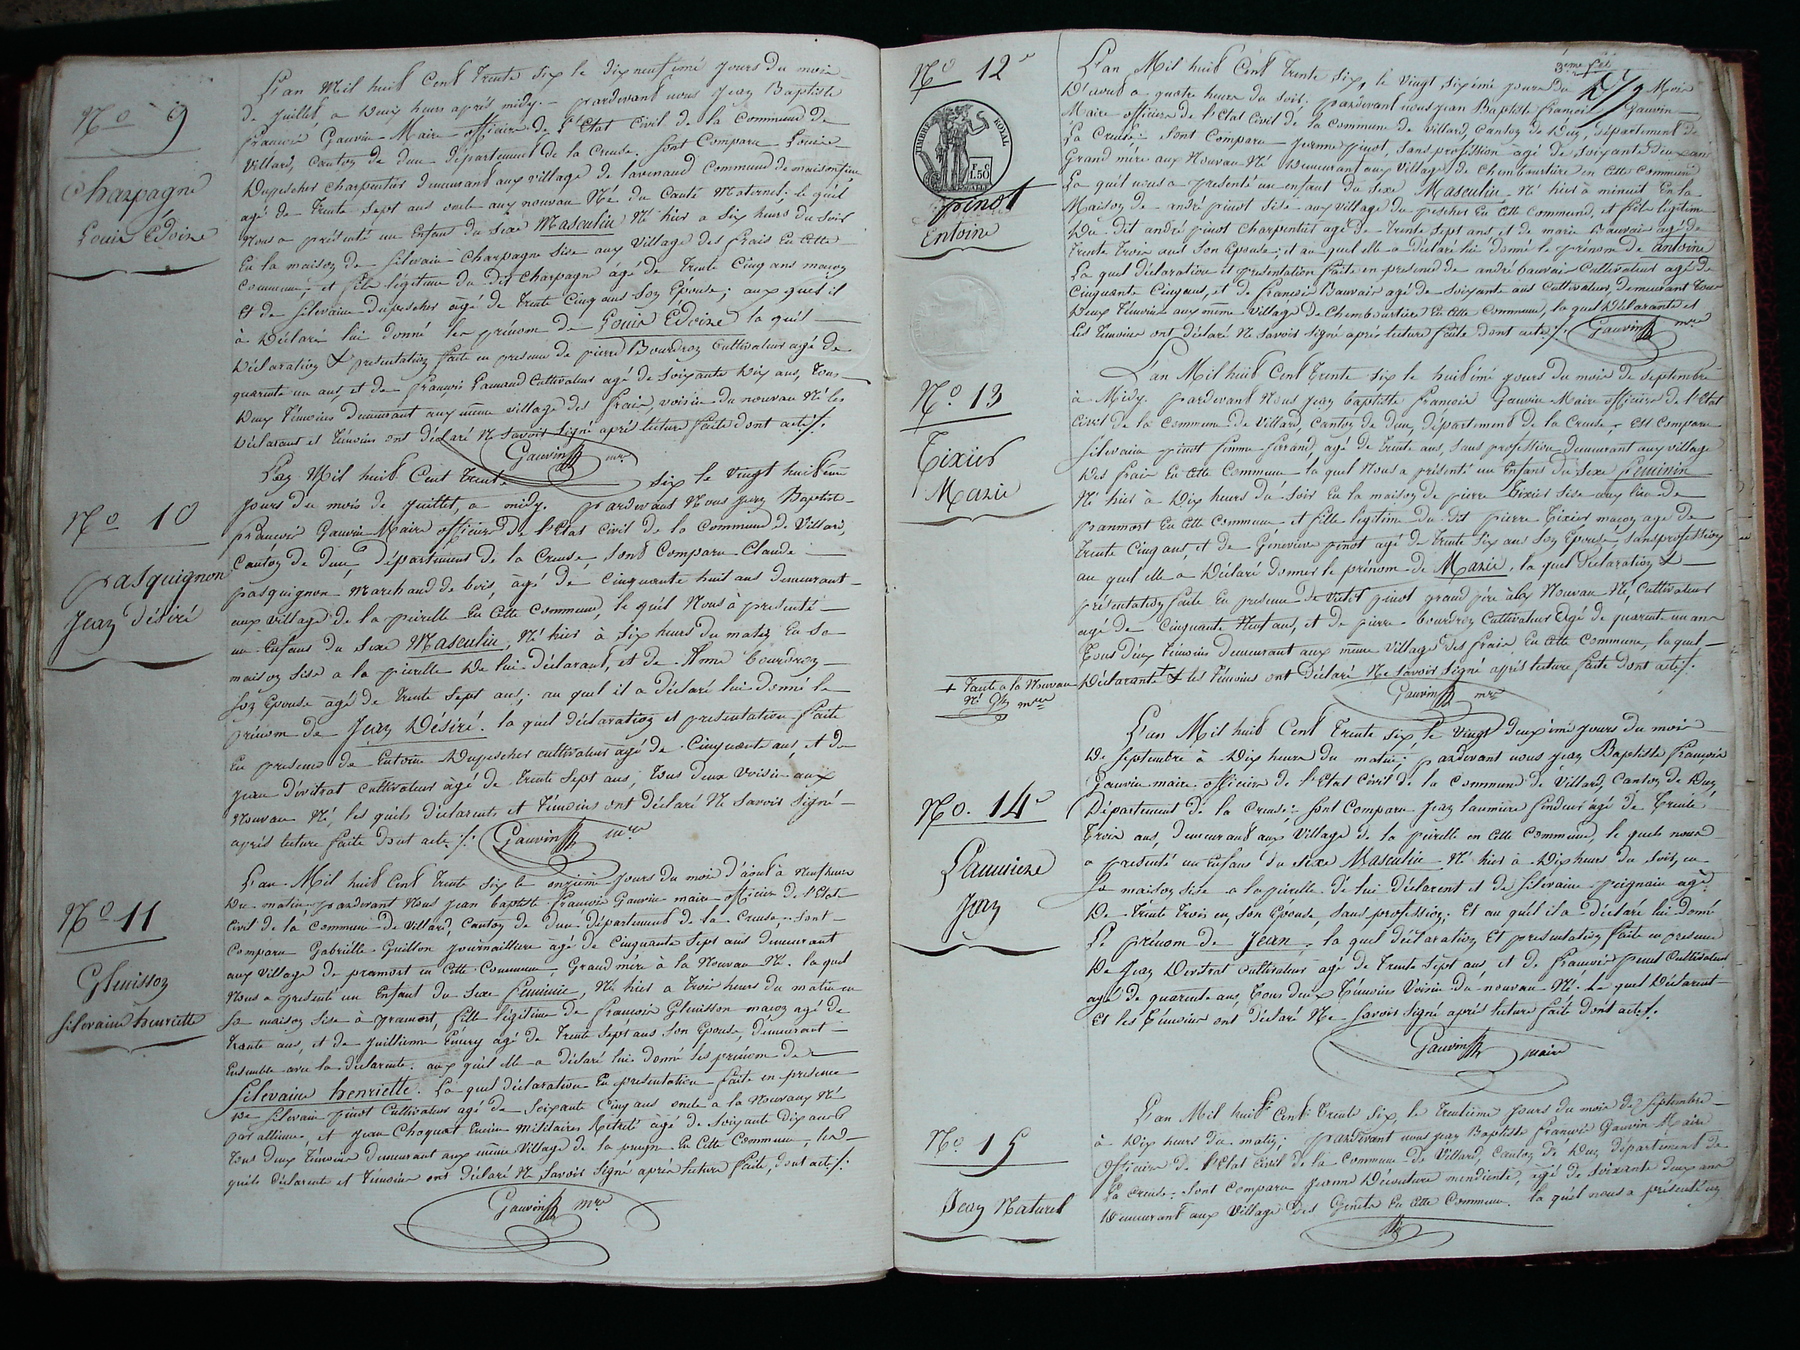 No 9
Charpagne
Louis Edvine
L'an Mil huit Cent trente six le dix neufième jours du mois
de juillet a deux heurs aprés midy. pardevant nous Jean Baptiste
françois Gauvin Maire officier de l'Etat Civil de la Commune de
Villard, Canton de dun département de la Creuse. sont Comparu Louis
Dupescher charpentier demeurant aux village de lavenaud Commune de maisonfeine
agé de trente sept ans oncle aux nouveau Né du Coté Maternel; le quél
Nous a présenté un Enfans du sexe Masculin Né hier a six heurs du soir
En la maison de silevain Charpagne sise aux village des frais En Cette
Commune, et fils légitime du dit Charpagne âgé de trente Cinq ans maçon
Et de silevaine dupescher agé de trente Cinq ans son Epouse; aux quel il
à Déclaré lui donné les prénom de Louis Edvine la quél
Déclaration & présentation faite en presence de pierre Bourdron Cultivateur agé de
quarente un ans, et de françois Lamaud Cultivateur agé de soixante dix ans, tous
deux témoins demeurant aux même village des frais, voisin du nouveau Né les
Déclarant et témoins ont déclaré Ne savoir signé aprés lecture faite dont acte ./.
Gauvin mre
No 10
pasquignon
Jean désiré
L'an Mil huit Cent trente six le vingt huitième
jours du mois de juillet, a midy. pardevant Nous Jean Baptiste
françois Gauvin Maire officier de l'Etat Civil de la Commune de Villard,
Canton de dun, département de la Creuse, sont Comparu Claude
pasquignon Marchand de bois, âgé de cinquante huit ans demeurant
aux village de la pierelle En Cette Commune, le quél Nous à presenté
un Enfans du sexe Masculin, Né hier à six heurs du matin En sa
maison sise a la pierelle De lui déclarant, et de Anne bourdron
son Epouse âgé de trente sept ans; au quel il a déclaré lui donné le
prénom de Jean Désiré. la quel déclaration et présentation faite
En presence de Entoine Dupescher cultivateur âgé de Cinquante ans et de
Jean divitrat cultivateur âgé de trente sept ans, tous deux voisin aux
Nouveau Né, les quéls déclarents et témoins ont déclaré Ne savoir signé
aprés lecture faite dont acte ./. Gauvin mre
No 11
Gleuisson
silevaine henriette
L'an Mil huit Cent trente six le onzieme jours du mois d'août à Neuf heurs
Du matin pardevant Nous Jean baptiste françois Gauvin maire officier de l'Etat
Civil de la Commune de Villard, Canton de dun département de la Creuse. sont
Comparu Gabrielle Guillon journaillière agé de Cinquante sept ans demeurant
aux village de pramort en Cette Commune. Grand mère à la Nouveau Né. la quel
Nous a presenté un Enfant du sexe féminin, Né hier a trois heurs du matin en
sa maison sise à pramort, fille légitime de françois Gleuisson maçon agé de
trente ans, et de agé de trente sept ans son Epouse, demeurant
Ensemble avec la déclarente. aux quél elle a déclaré lui donné les prénom de
silevaine henriette. la quel déclaration En presentation faite en présence
De silevain pinot Cultivateur agé de soixante Cinq ans oncle a la Nouveaux Né
par alliance, et Jean Choquat Encien militaires Retrété âgé de soixante dix ans
tous deux témoins demeurant aux même village de la prugne En Cette Commune, les
quéls déclarente et témoins ont déclaré Ne savoir signé aprés lecture faite, dont acte ./.
Gauvin mre
3eme fel
2/9
No 12e
TIMBRE ROYAL
1.50
pinot
Entoine
L'an Mil huit Cent trente six, le vingt sixième jours du Mois
D'aout a quatre heurs du soir; pardevant nous jean Baptiste françois Gauvin
Maire officier de l'Etat Civil de la Commune de Villard, Canton de Dun, département de
La Creuse; sont Comparu Jeanne pinot, sans profession agé de soixante deux ans
Grand mère aux Nouveau Né Demeurant aux Village de Chemboursiere en Cette Commune
La quél nous a presenté un enfant du sexe Masculin Né hier à minuit En la
Maison de andré pinot sise aux village du pescher En Cette Commune, et fils légitime
Du dit andré pinot Charpentier agé de trente sept ans et de marie Bauvais agé de
trente trois ans son Epouse; et au quel elle a déclaré lui donné le prénom de antoine
La quel déclaration et présentation faite en presence de andré bauvais Cultivateur agé de
Cinquante Cinq ans, et de françois Bauvais agé de soixante ans Cultivateur, demeurant tous
Deux témoins aux même village de Chemboursiere En Cette Commune, la quel Déclarante et
les témoins ont déclaré Ne savoir signé aprés lecture faite dont acte ./. Gauvin mre
No 13
Tixier
Marie
L'an Mil huit Cent trente six le huitième jours du mois de septembre
à Midy. pardevant Nous Jean baptiste françois Gauvin Maire officier de l'Etat
Civil de la Commune de Villard, Canton de dun, département de la Creuse, Est Comparu
silevaine pinot femme finand, agé de trente ans, sans profession demeurant aux village
Des frais En Cette Commune la quel Nous a présenté un Enfans du sexe féminin
Né hier à Dix heurs du soir En la maison de pierre Tixier sise aux lieu de
pranmort En Cette Commune et fille légitime du dit pierre Tixier maçon agé de
trente Cinq ans, et de Généviève pinot agé de trente six ans son Epouse sans profession
au quel elle a Déclaré donner le prénom de Marie, la quel Déclaration &
présentation faite En presence de pinot grand père à la Nouveau Né, Cultivateur
agé de Cinquante Neuf ans, et de pierre bourdron Cultivateur âgé de quarente un ans
Tous deux témoins demeurant aux même Village des frais En Cette Commune, la quel
Déclarante + & les témoins ont déclaré Ne savoir signé aprés lecture faite dont acte ./.
Gauvin mre
+ Tante a la Nouveau
Né G mre
No. 14e
Laumiere
Jean
L'an Mil huit Cent trente six le vingt deuxième jours du mois
De septembre à dix heurs du matin; pardevant nous Jean Baptiste françois
Gauvin maire officier de l'Etat Civil de la Commune de Villard, Canton de dun
Département de la Creuse: sont Comparu Jean laumière fendeur agé de trente
trois ans, demeurant aux Village de la pierelle en Cette Commune, le quels nous
a présenté un Enfans du sexe Masculin Né hier à Dix heurs du soir, en
Sa maison sise a la pierelle de lui déclarent et de silevaine peignain agé
De trente trois en, son Epouse, sans profession; Et au quél il a déclaré lui donné
Le prénom de Jean, la quel déclaration Et presentation faite en presence
De Jean Divitrat cultivateur agé de trente sept ans et de françois pinot Cultivateur
agé de quarente ans, tous deux témoins Voisin du nouveau Né. Le quel Déclarent
Et les témoins ont déclaré Ne savoir signé aprés lecture faite dont acte ./.
Gauvin maire
No 15
Jean Naturel
L'an Mil huit Cent trente six, le trentième jours du mois de septembre
à Dix heurs du matin; pardevant nous jean Baptiste françois Gauvin Maire
officier de l'Etat Civil de la Commune de Villard, Canton de Dun département de
La Creuse. Sont Comparu Jeanne mendiente, agé de soixante deux ans
Demeurant aux Village des Genets En Cette Commune. la quél nous a présenté un